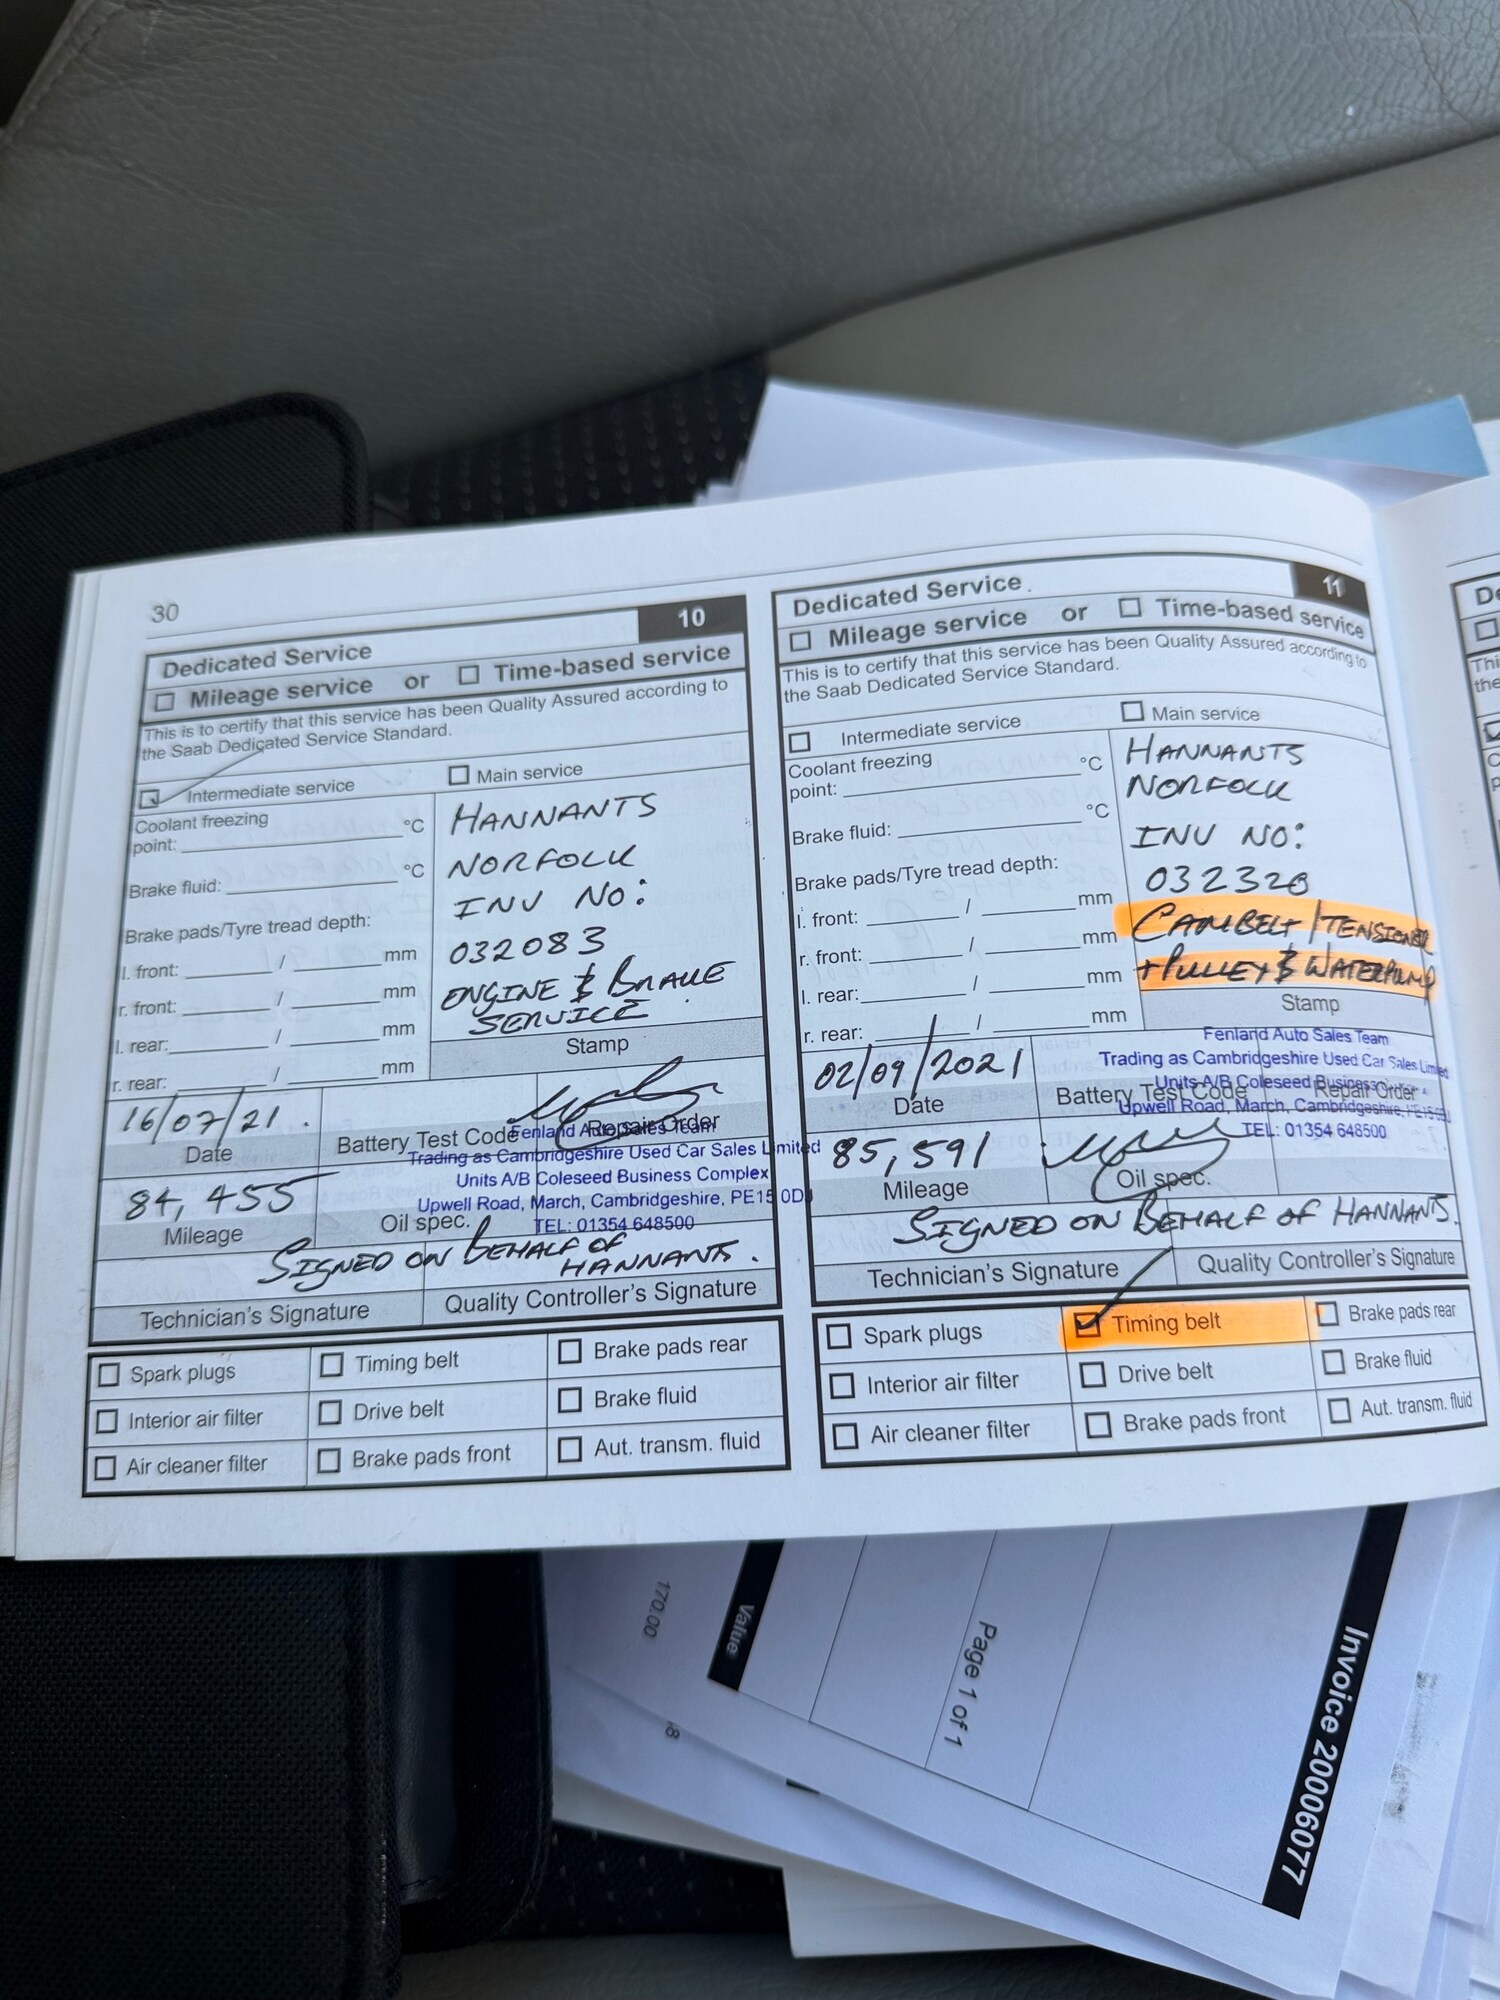 30
10
Dedicated Service
Mileage service or Time-based service
This is to certify that this service has been Quality Assured according to
the Saab Dedicated Service Standard.
Intermediate service
Main service
Coolant freezing
point: °C
Brake fluid: °C
Brake pads/Tyre tread depth:
l. front: / mm
r. front: / mm
l. rear: / mm
r. rear: / mm
HANNANTS
NORFOLK
INV NO:
032083
ENGINE & BRAKE
SERVICE
Stamp
16/07/21
Date
Battery Test Code
Repair Order
Fenland Auto Sales Team
Trading as Cambridgeshire Used Car Sales Limited
Units A/B Coleseed Business Complex
Upwell Road, March, Cambridgeshire, PE15 0DJ
TEL: 01354 648500
84,455
Mileage
Oil spec.
SIGNED ON BEHALF OF
HANNANTS.
Technician's Signature
Quality Controller's Signature
Spark plugs
Timing belt
Brake pads rear
Interior air filter
Drive belt
Brake fluid
Air cleaner filter
Brake pads front
Aut. transm. fluid
11
Dedicated Service
Mileage service or Time-based service
This is to certify that this service has been Quality Assured according to
the Saab Dedicated Service Standard.
Intermediate service
Main service
Coolant freezing
point: °C
Brake fluid: °C
Brake pads/Tyre tread depth:
l. front: / mm
r. front: / mm
l. rear: / mm
r. rear: / mm
HANNANTS
NORFOLK
INV NO:
032320
CAMBELT/TENSIONER
+PULLEY & WATERPUMP
Stamp
02/09/2021
Date
Battery Test Code
Repair Order
Fenland Auto Sales Team
Trading as Cambridgeshire Used Car Sales Limited
Units A/B Coleseed Business
Upwell Road, March, Cambridgeshire,
TEL: 01354 648500
85,591
Mileage
Oil spec.
SIGNED ON BEHALF OF HANNANTS.
Technician's Signature
Quality Controller's Signature
Spark plugs
Timing belt
Brake pads rear
Interior air filter
Drive belt
Brake fluid
Air cleaner filter
Brake pads front
Aut. transm. fluid
170.00
Value
Page 1 of 1
Invoice 20006077